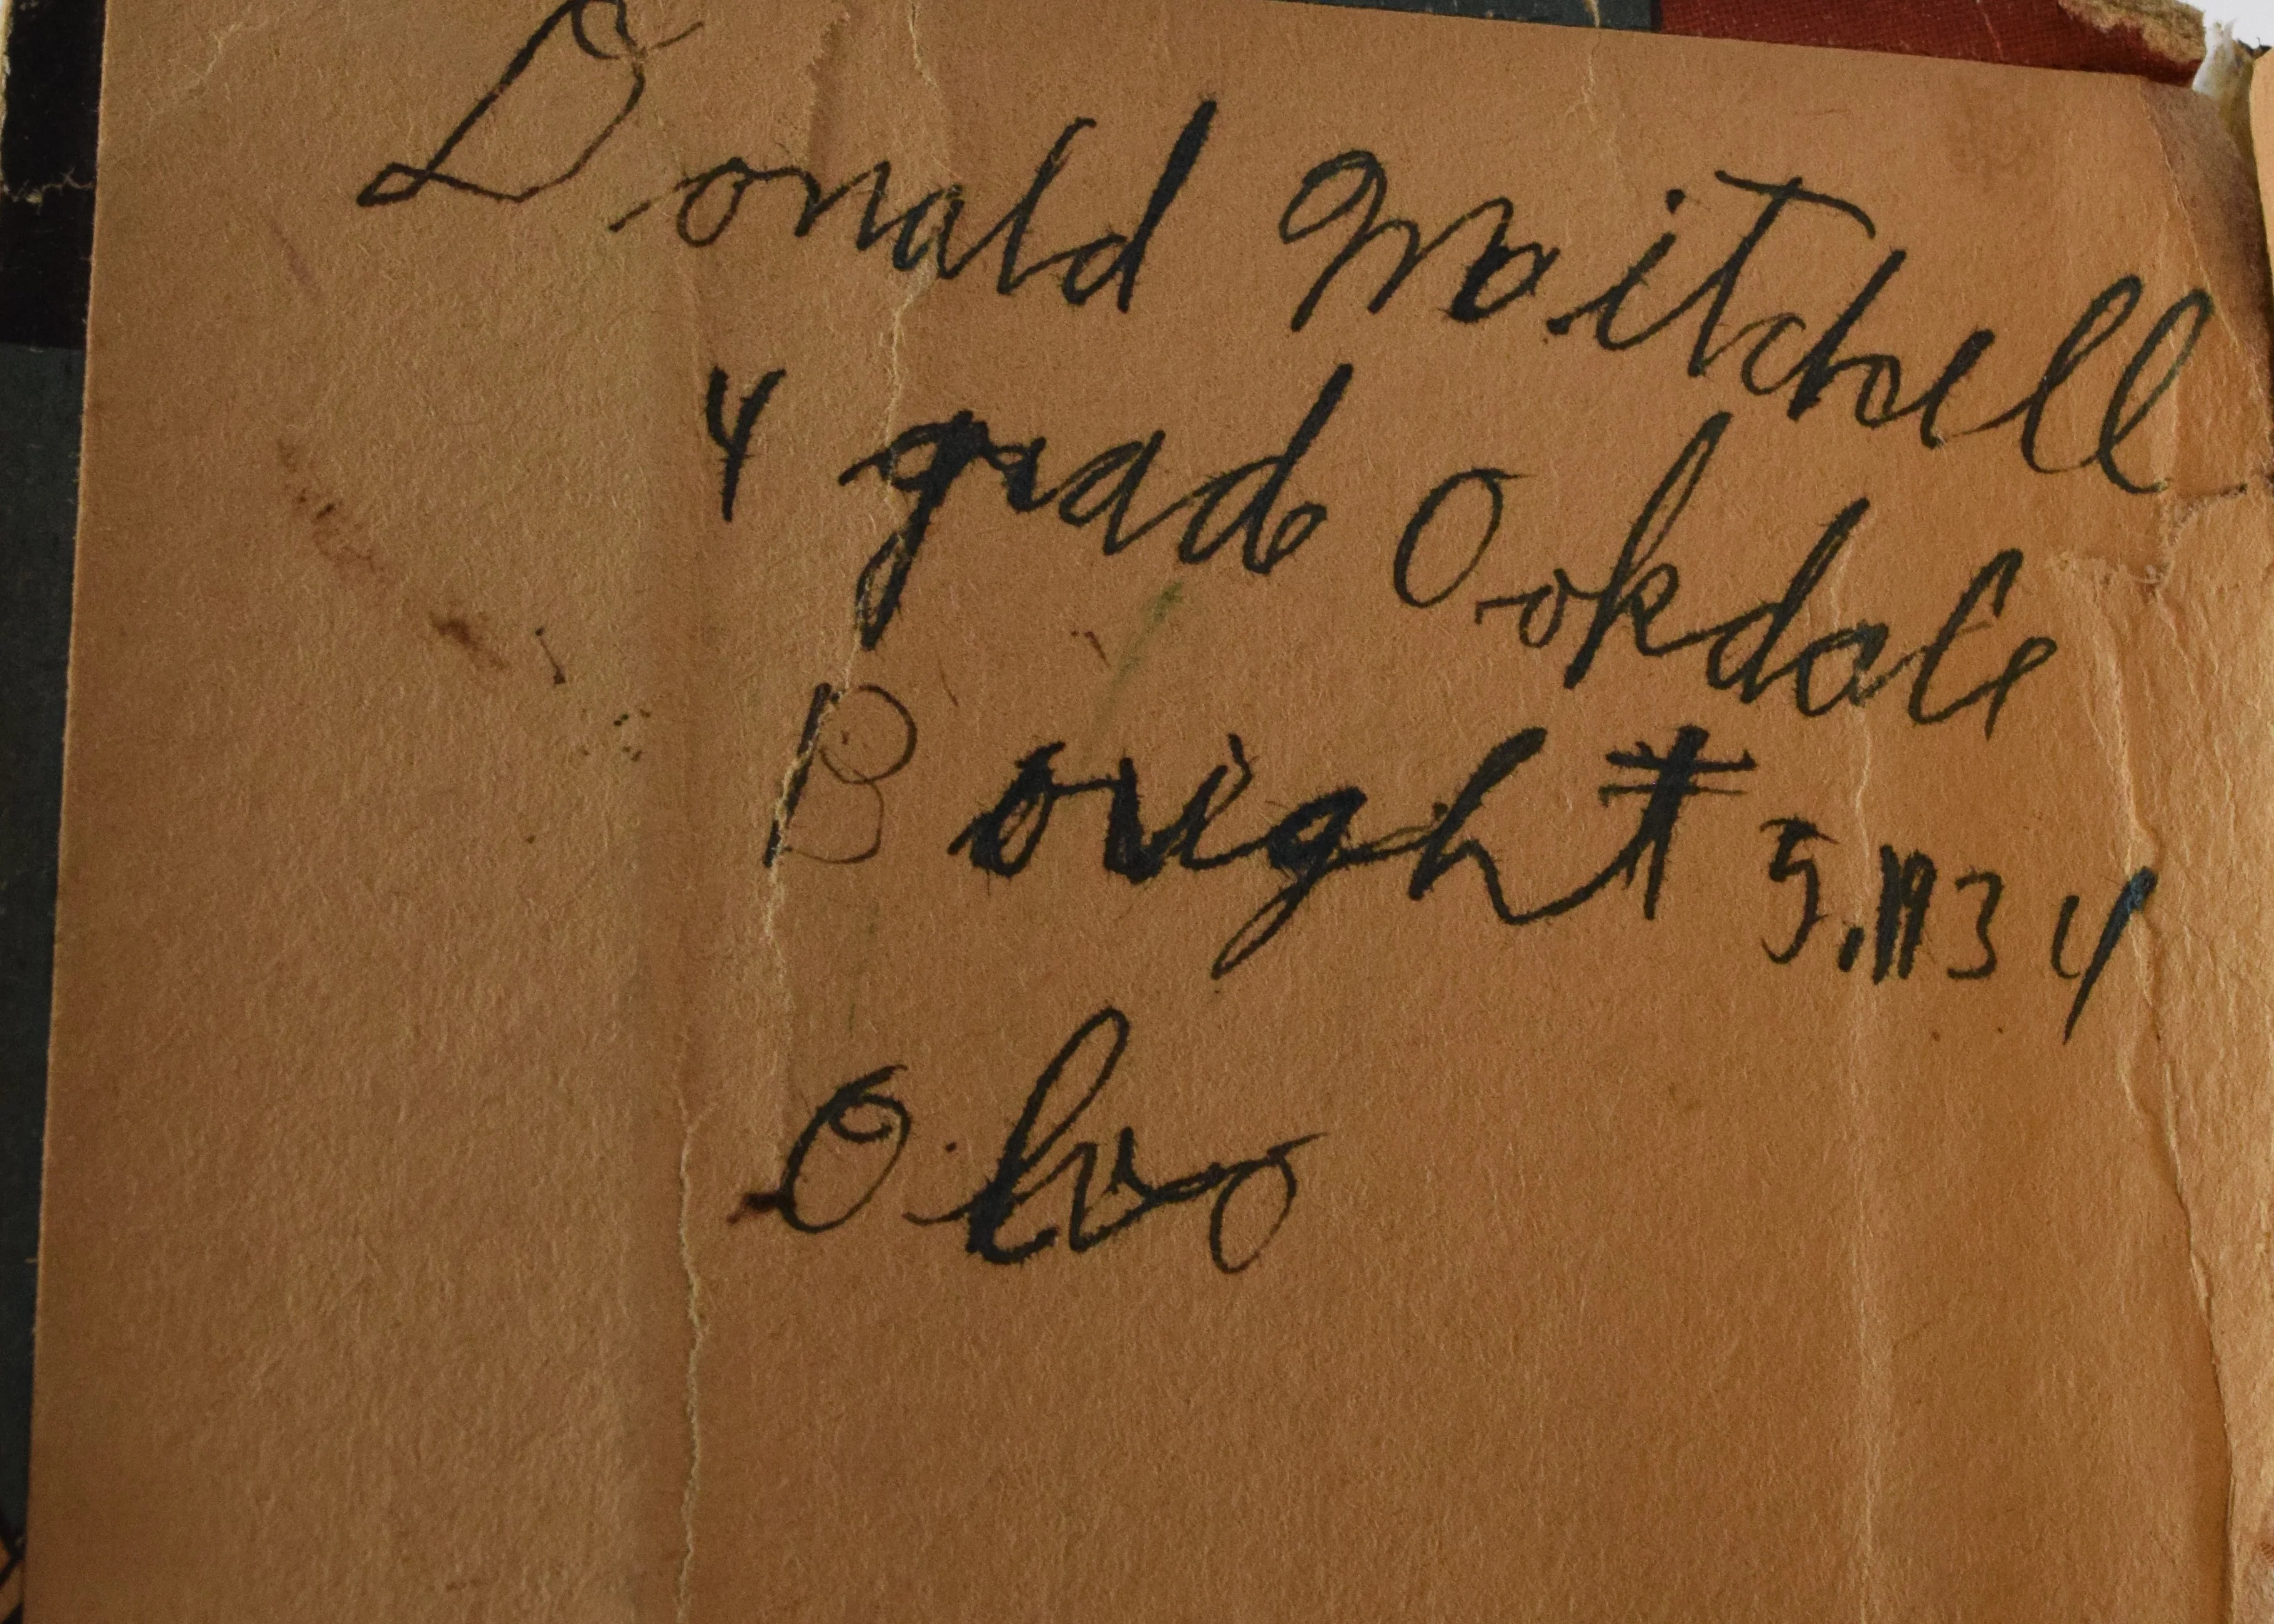 Donald Maitchell
4 grad Oakdale
Bought 5, 1934
Ohio